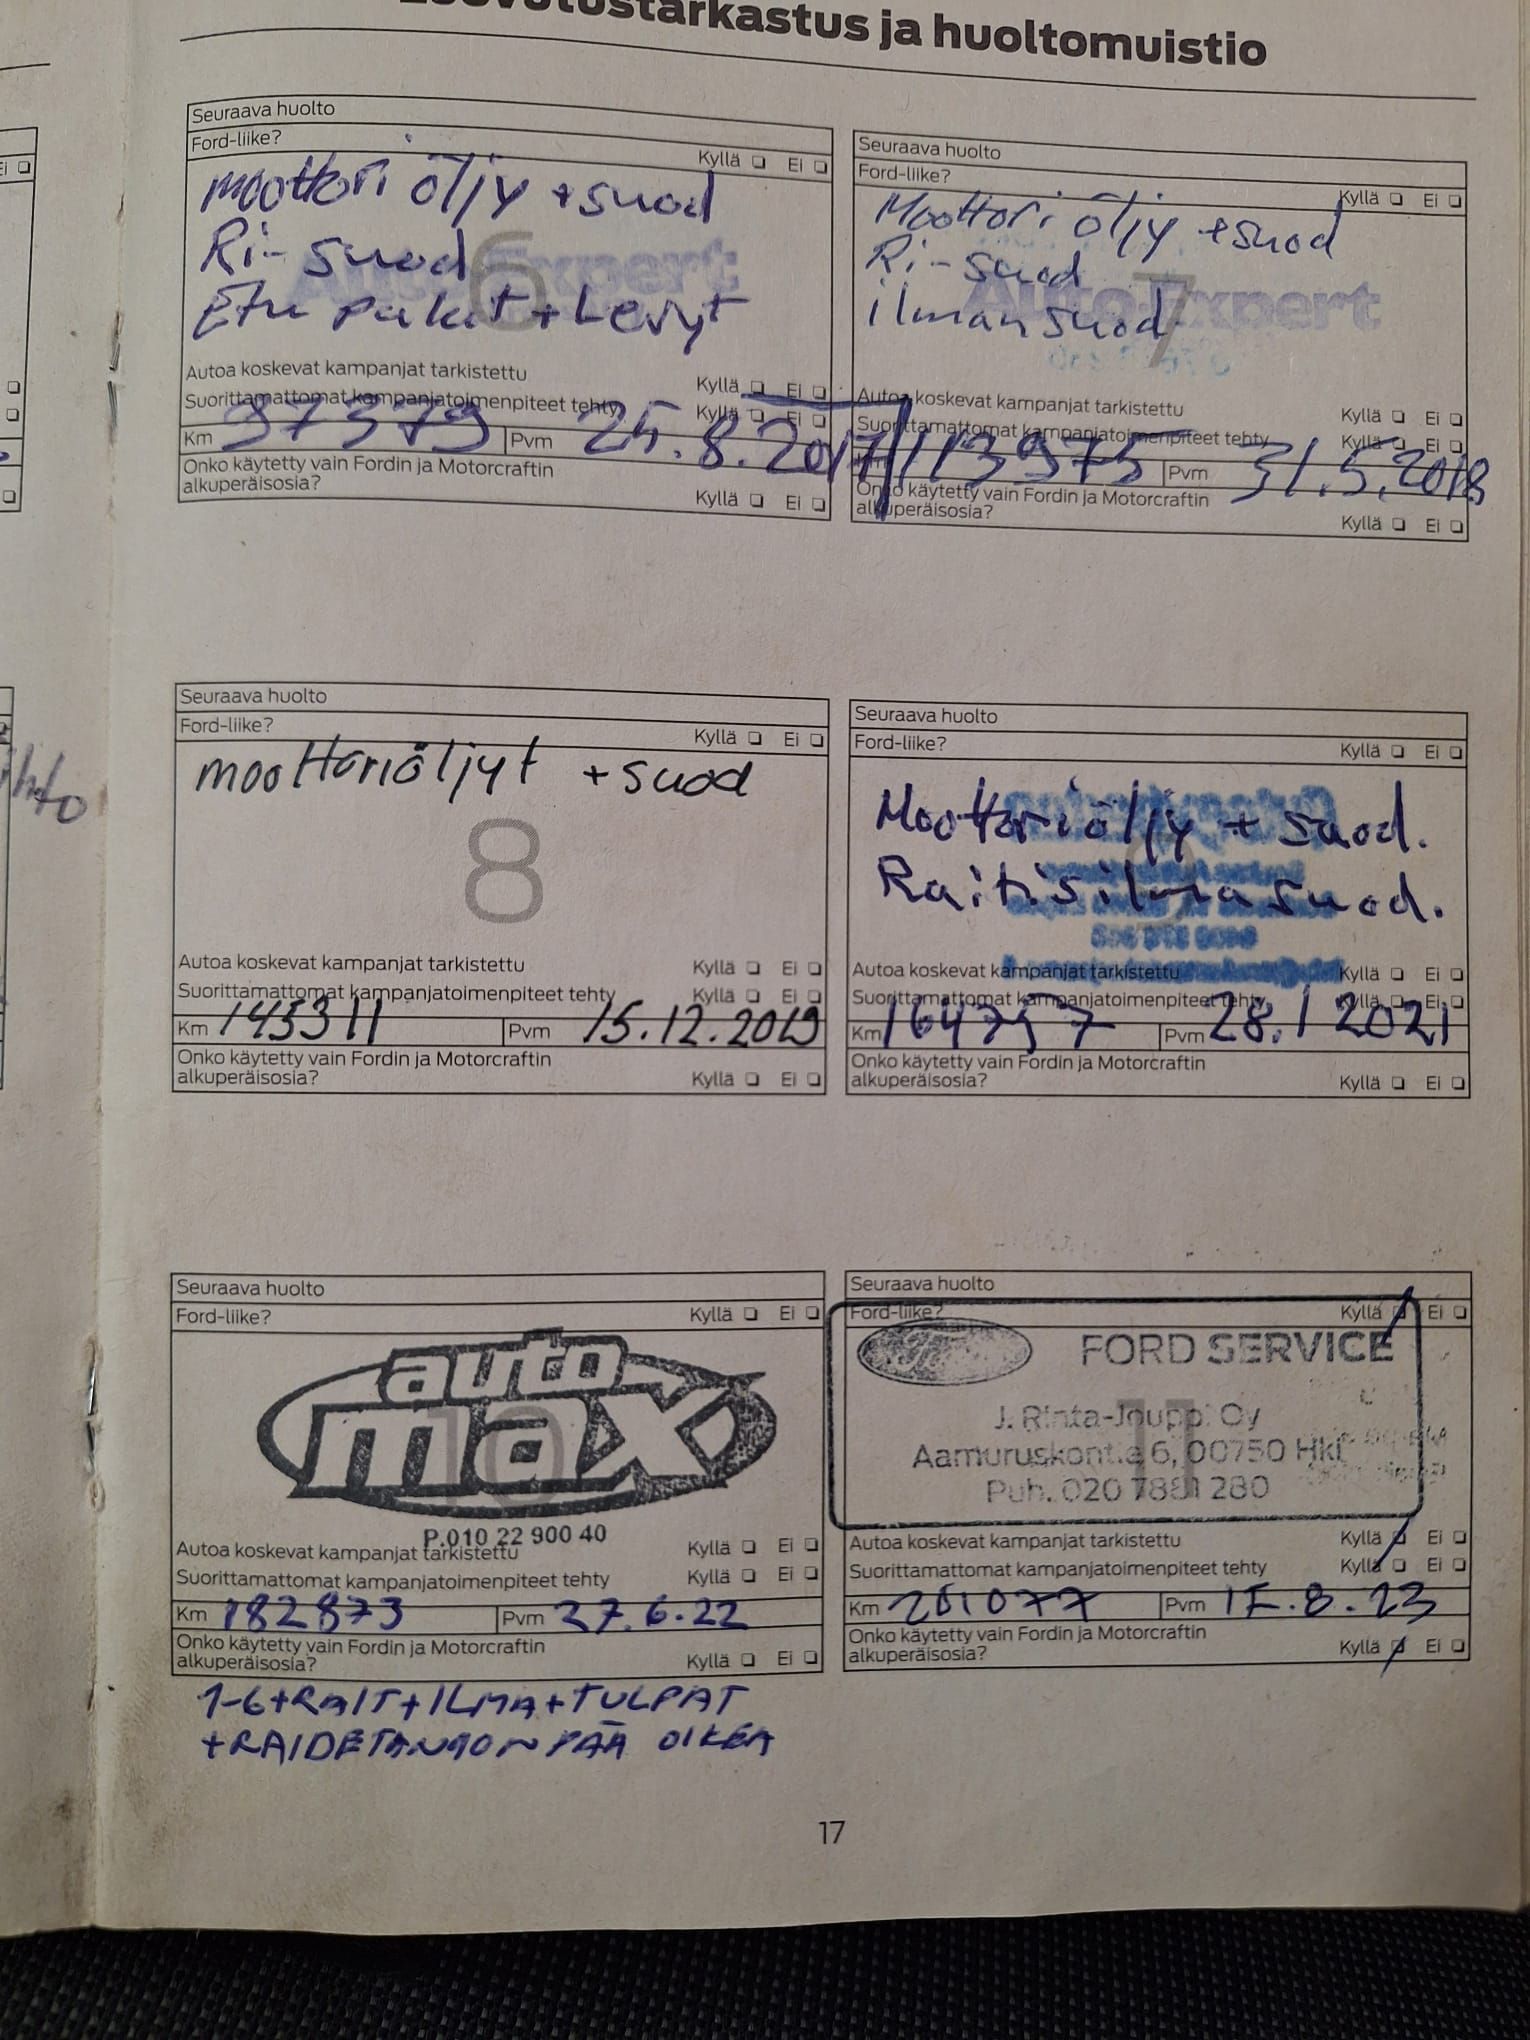 tarkastus ja huoltomuistio
Seuraava huolto
Ford-liike?
Kyllä Ei
moottori öljy + suod
Ri- suod
Etu palat + Levyt
6
Auto Expert
Autoa koskevat kampanjat tarkistettu
Kyllä Ei
Suorittamattomat kampanjatoimenpiteet tehty
Kyllä Ei
Km 97379 Pvm 25.8.2017
Onko käytetty vain Fordin ja Motorcraftin
alkuperäisosia?
Kyllä Ei
Seuraava huolto
Ford-liike?
Kyllä Ei
Moottori öljy + suod
Ri- suod
ilman suod
7
AutoExpert
Autoa koskevat kampanjat tarkistettu
Kyllä Ei
Suorittamattomat kampanjatoimenpiteet tehty
Kyllä Ei
Km 113975 Pvm 31.5.2018
Onko käytetty vain Fordin ja Motorcraftin
alkuperäisosia?
Kyllä Ei
Seuraava huolto
Ford-liike?
Kyllä Ei
moottoriöljyt + suod
8
Autoa koskevat kampanjat tarkistettu
Kyllä Ei
Suorittamattomat kampanjatoimenpiteet tehty
Kyllä Ei
Km 145311 Pvm 15.12.2019
Onko käytetty vain Fordin ja Motorcraftin
alkuperäisosia?
Kyllä Ei
Seuraava huolto
Ford-liike?
Kyllä Ei
Moottoriöljy + suod.
Raitisilmasuod.
Autoa koskevat kampanjat tarkistettu
Kyllä Ei
Suorittamattomat kampanjatoimenpiteet tehty
Kyllä Ei
Km 164757 Pvm 28.1 2021
Onko käytetty vain Fordin ja Motorcraftin
alkuperäisosia?
Kyllä Ei
Seuraava huolto
Ford-liike?
Kyllä Ei
auto
max
10
P.010 22 900 40
Autoa koskevat kampanjat tarkistettu
Kyllä Ei
Suorittamattomat kampanjatoimenpiteet tehty
Kyllä Ei
Km 182873 Pvm 27.6.22
Onko käytetty vain Fordin ja Motorcraftin
alkuperäisosia?
Kyllä Ei
1-6+RAIT+ILMA+TULPAT
+RAIDETANGON PÄÄ OIKEA
Seuraava huolto
Ford-liike?
Kyllä Ei
Ford FORD SERVICE
11
J. Rinta-Jouppi Oy
Aamuruskontie 6, 00750 Hki
Puh. 020 7881 280
Autoa koskevat kampanjat tarkistettu
Kyllä Ei
Suorittamattomat kampanjatoimenpiteet tehty
Kyllä Ei
Km 201077 Pvm
Onko käytetty vain Fordin ja Motorcraftin
alkuperäisosia?
Kyllä Ei
17